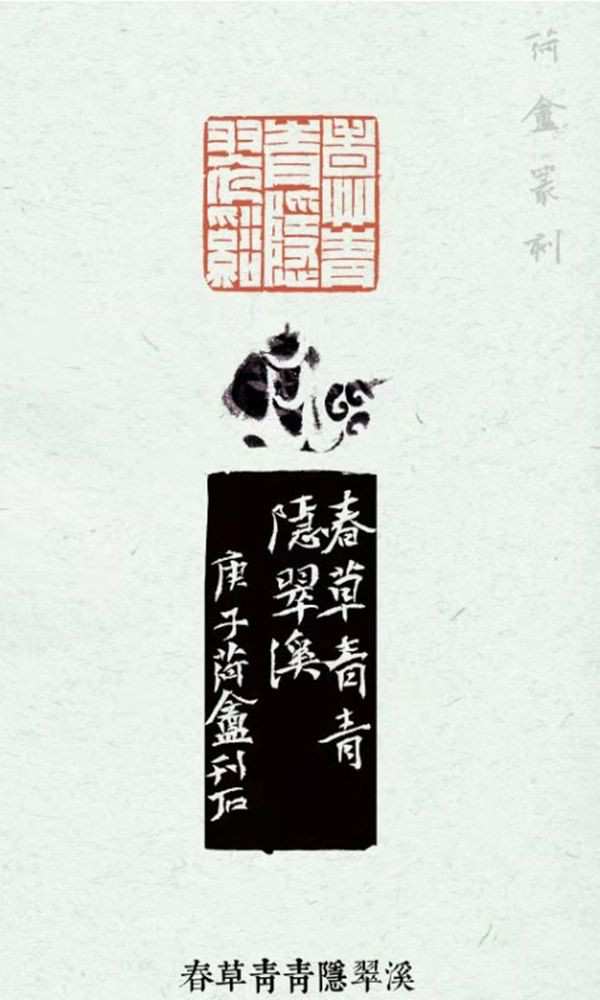 荷盦篆刻
春艸青
青隱
翠谿
春草青青
隱翠溪
庚子荷盦刊石
春草青青隱翠溪